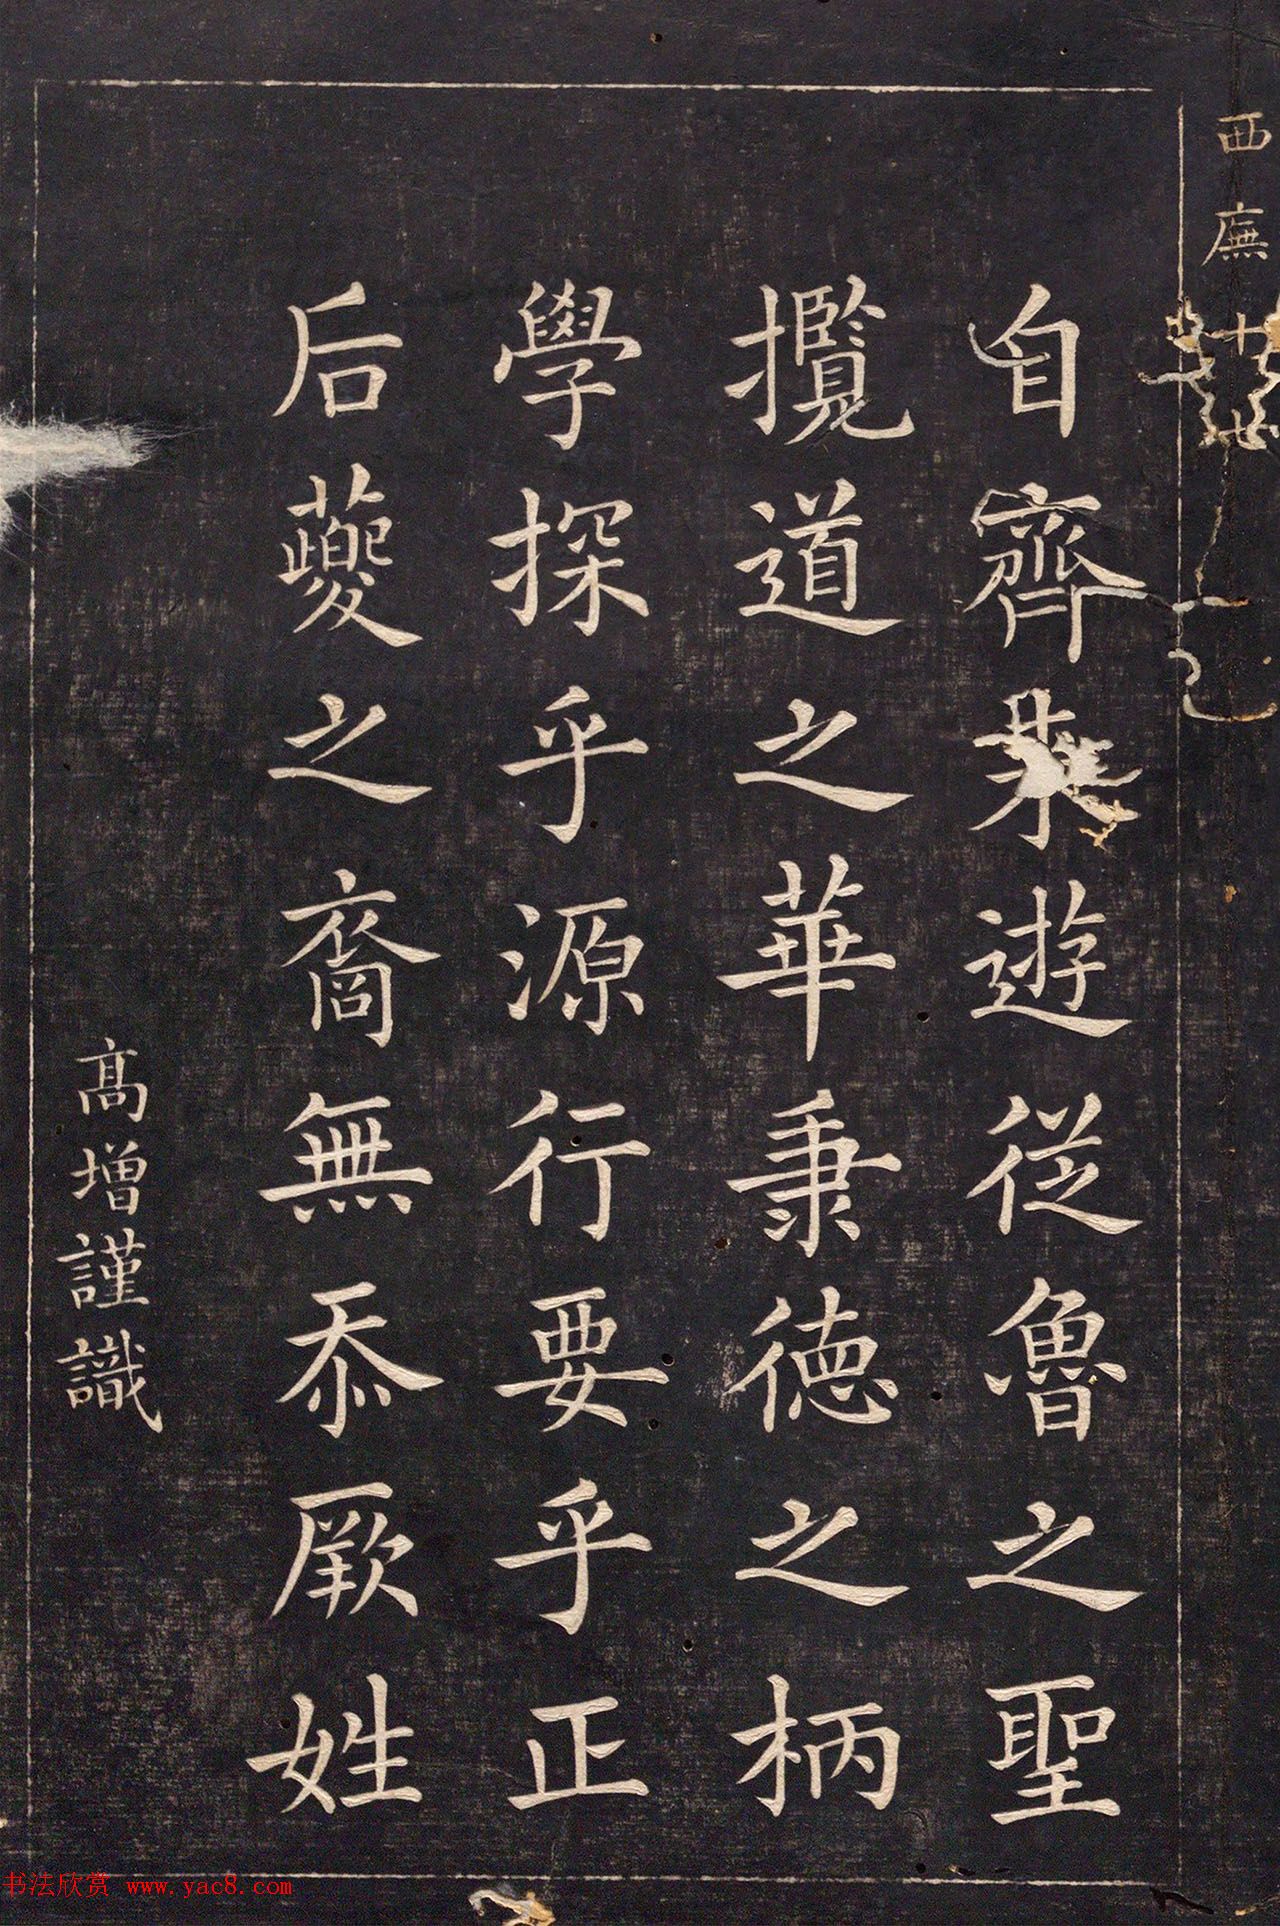 西廡十七
自齊來遊從魯之聖
攬道之華秉德之柄
學探乎源行要乎正
后夔之裔無忝厥姓
高增謹識
书法欣赏 www.yac8.com